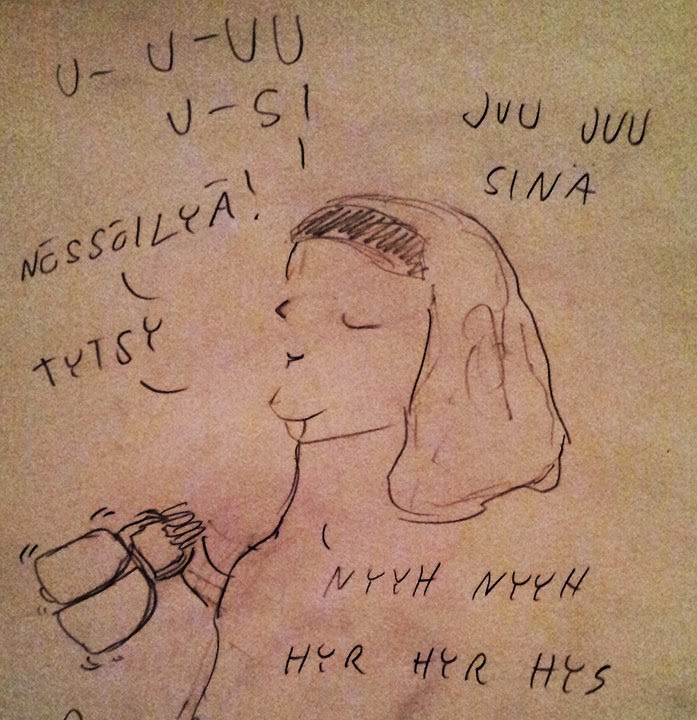 U-U-UU
U-SI
JUU JUU
SINÄ
NÖSSÖILYÄ!
TYTSY
NYYH NYYH
HYR HYR HYS